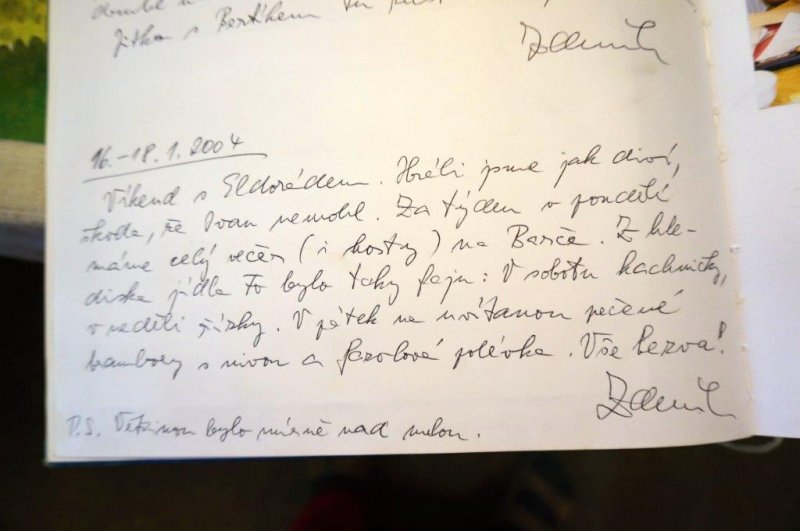 Jitka s Bertíkem tu
16.–18. 1. 2004
Víkend s Eldorádem. Hráli jsme jak diví,
škoda, že Ivan nemohl. Za týden v pondělí
máme celý večer (i hosty) na Barče. Z hle-
diska jídla to bylo taky fajn: V sobotu kachničky,
v neděli řízky. V pátek na uvítanou pečené
brambory s nivou a fazolová polévka. Vše bezva!
P.S. Většinou bylo mírně nad nulou.